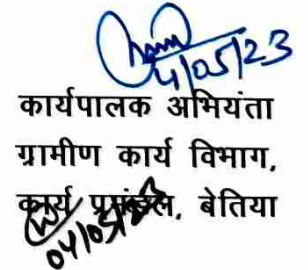 4/05/23
कार्यपालक अभियंता
ग्रामीण कार्य विभाग,
कार्य प्रमंडल, बेतिया
04/05/23